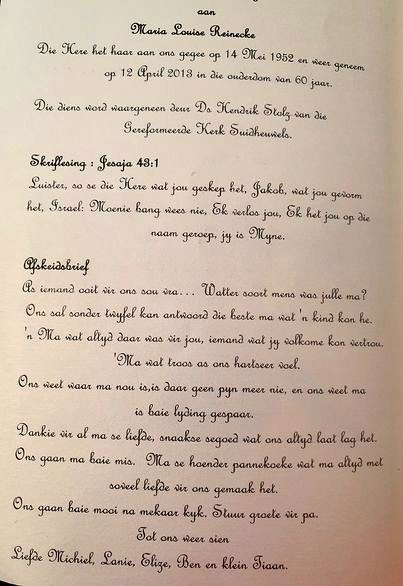 aan
Maria Louise Reinecke
Die Here het haar aan ons gegee op 14 Mei 1952 en weer geneem
op 12 April 2013 in die ouderdom van 60 jaar.
Die diens word waargeneem deur Ds Hendrik Stolz van die
Gereformeerde Kerk Suidheuwels.
Skriflesing : Jesaja 43:1
Luister, so se die Here wat jou geskep het, Jakob, wat jou gevorm
het, Israel: Moenie bang wees nie, Ek verlos jou, Ek het jou op die
naam geroep, jy is Myne.
Afskeidsbrief
As iemand ooit vir ons sou vra... Watter soort mens was julle ma?
Ons sal sonder twyfel kan antwoord die beste ma wat 'n kind kon he.
'n Ma wat altyd daar was vir jou, iemand wat jy volkome kon vertrou.
'Ma wat troos as ons hartseer voel.
Ons weet waar ma nou is,is daar geen pyn meer nie, en ons weet ma
is baie lyding gespaar.
Dankie vir al ma se liefde, snaakse segoed wat ons altyd laat lag het.
Ons gaan ma baie mis. Ma se hoender pannekoeke wat ma altyd met
soveel liefde vir ons gemaak het.
Ons gaan baie mooi na mekaar kyk. Stuur groete vir pa.
Tot ons weer sien
Liefde Michiel, Lanie, Elize, Ben en klein Tiaan.